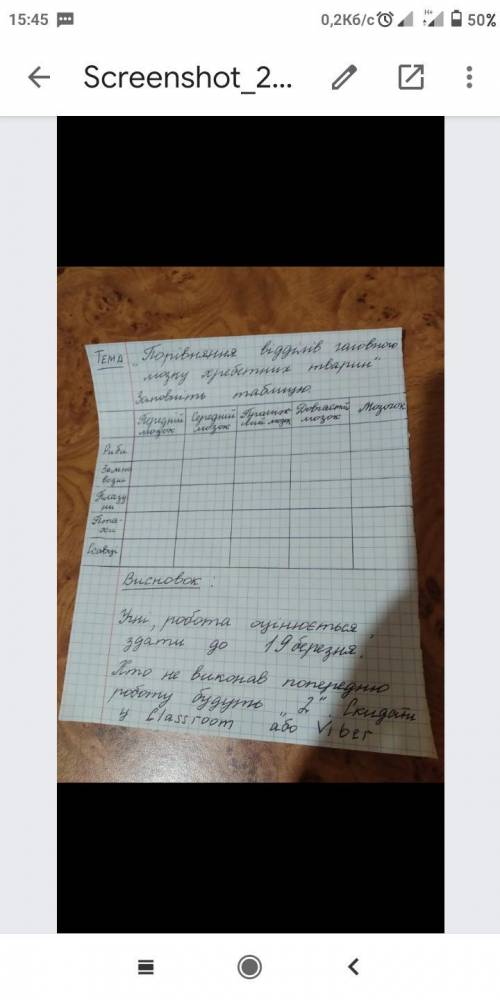 15:45 0,2Кб/с H+ 50%
Screenshot_2...
Тема "Порівняння відділів головного
мозку хребетних тварин"
Заповніть таблицю
Передній мозок Середній мозок Проміжний мозок Довгастий мозок Мозочок
Риби
Земноводні
Плазуни
Птахи
Ссавці
Висновок:
Учні, робота оцінюється
здати до 19 березня.
Хто не виконав попередню
роботу будуть "2". Скидати
у Classroom або Viber